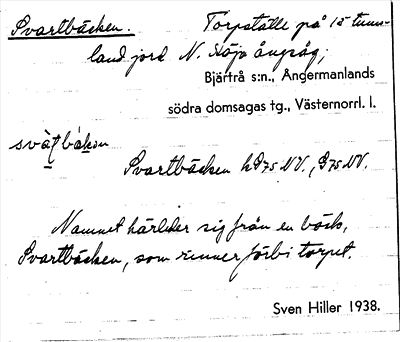 Svartbäcken. Torpställe på 15 tunn-
land jord N. Höja ångsåg;
Bjärtrå s:n., Ångermanlands
södra domsagas tg., Västernorrl. l.
Svartbäcken h D75 NV., D75 NV.
Namnet härleder sig från en bäck,
Svartbäcken, som rinner förbi torpet.
Sven Hiller 1938.